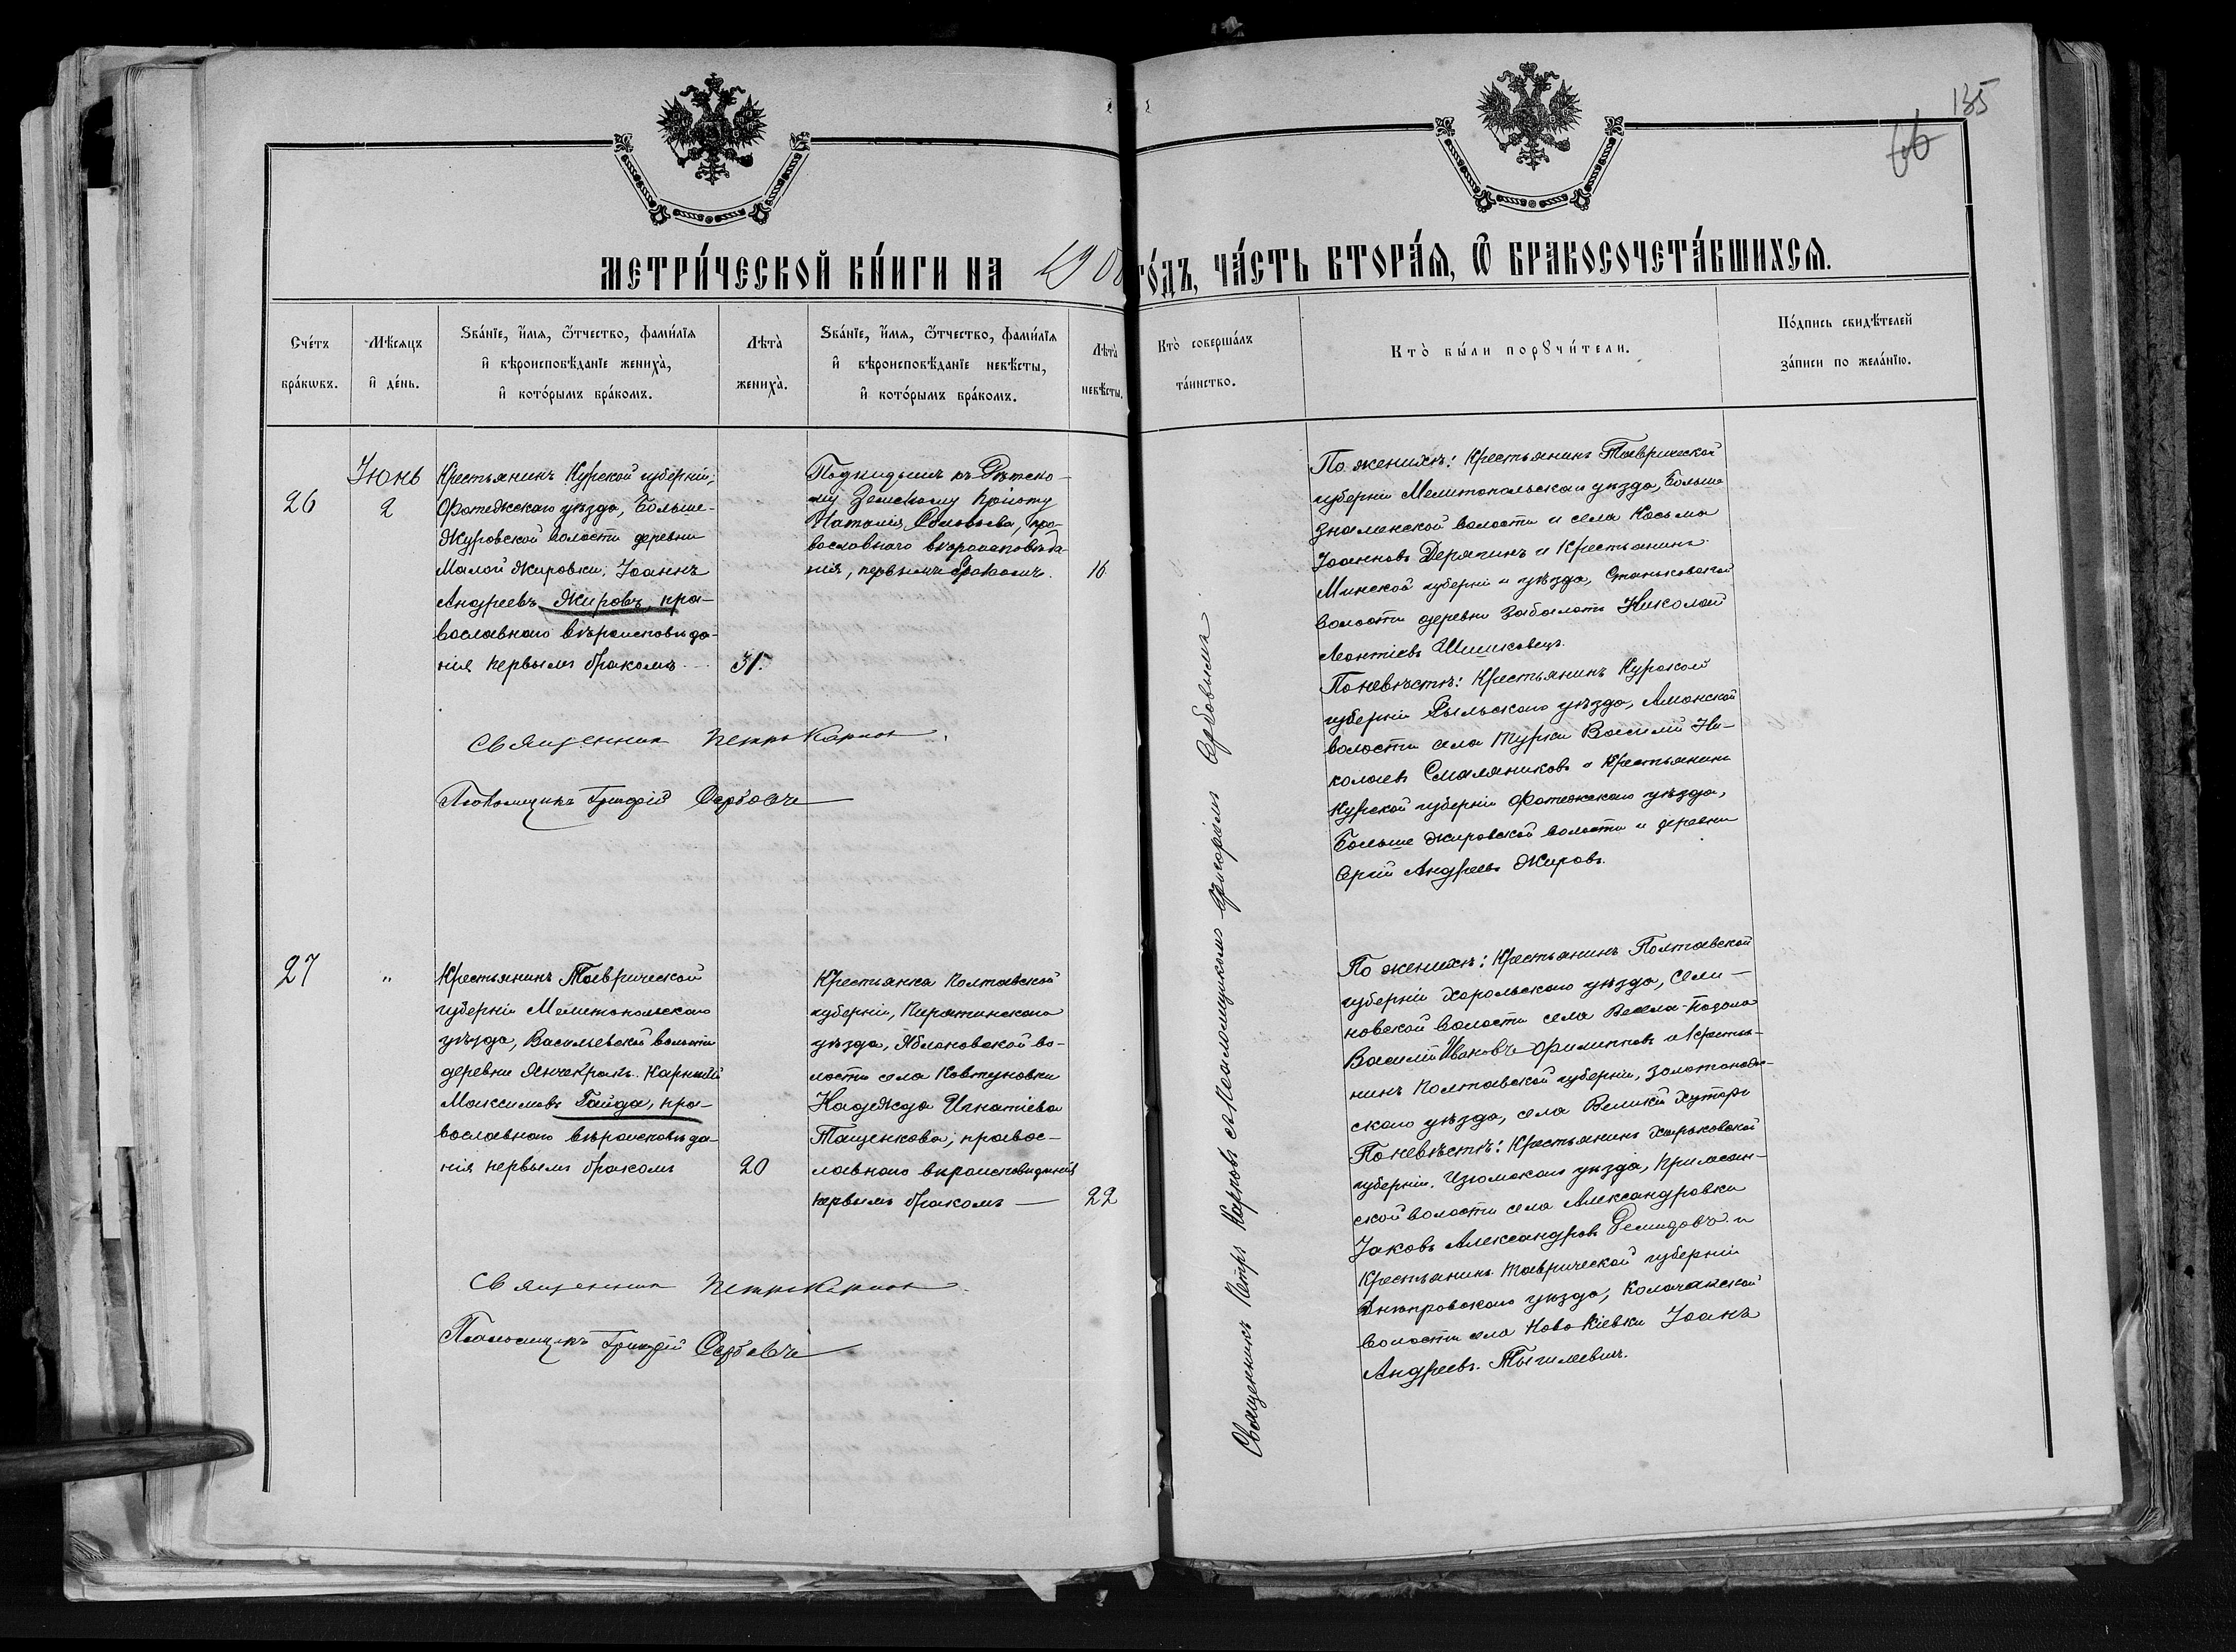 135
66
МЕТРИ́ЧЕСКОЙ КНИ́ГИ НА 190
ГО́ДЪ, ЧА́СТЬ ВТОРА́Я, Ѿ БРАКОСОЧЕТА́ВШИХСЯ.
Сче́тъ
бра́кѡвъ.
Мѣ́сяцъ
и҆ де́нь.
Зва́нїе, и҆́мя, ѻ҆́тчество, фами́лїя
и҆ вѣроисповѣ́данїе жениха̀,
и҆ кото́рымъ бра́комъ.
Лѣта̀
жениха̀.
Зва́нїе, и҆́мя, ѻ҆́тчество, фами́лїя
и҆ вѣроисповѣ́данїе невѣ́сты,
и҆ кото́рымъ бра́комъ.
Лѣта̀
невѣ́сты.
Кто̀ соверша́лъ
та́инство.
Кто̀ бы́ли порꙋчи́тели.
По́дпись свидѣ́телей
за́писи по жела́нїю.
26
Іюнь
2
Крестьянинъ Курской губерніи,
Фатежскаго уѣзда, Больше-
Жировской волости деревни
Малой Жировки, Іоаннъ
Андреевъ Жировъ, пра-
вославнаго вѣроисповѣда-
нія первымъ бракомъ.
31.
Подкидышъ къ Дѣтско-
му Земскому Пріюту
Наталія Соловьева, пра-
вославнаго вѣроисповѣда
нія, первымъ бракомъ.
16
Священникъ Петръ Карповъ
Псаломщикъ Григорій Сербовъ
Священникъ Петръ Карповъ съ псаломщикомъ Григоріемъ Сербовымъ
По женихѣ: Крестьянинъ Таврической
губерніи Мелитопольскаго уѣзда, Больше
Знаменской волости и села Косьма
Іоанновъ Дерягинъ и Крестьянинъ
Минской губерніи и уѣзда, Станьковской
волости деревни Заболоть Николай
Леонтіевъ Шишковецъ.
По невѣстѣ: Крестьянинъ Курской
губерніи Рыльскаго уѣзда, Амонской
волости села Турки Василій Ни-
колаевъ Смаляниковъ и Крестьянинъ
Курской губерніи Фатежскаго уѣзда,
Больше Жировской волости и деревни
Сергій Андреевъ Жировъ.
27
"
Крестьянинъ Таврической
губерніи Мелитопольскаго
уѣзда, Васильевской волости
деревни Янчекракъ. Карпъ
Максимовъ Гайда, пра-
вославнаго вѣроисповѣда-
нія первымъ бракомъ
20
Крестьянка Полтавской
губерніи, Пирятинскаго
уѣзда, Яблоновской во-
лости села Ковтуновки
Надежда Игнатіева
Тащенкова, правос-
лавнаго вѣроисповѣданія
первымъ бракомъ —
22
Священникъ Петръ Карповъ
Псаломщикъ Григорій Сербовъ
По женихѣ: Крестьянинъ Полтавской
губерніи Хорольскаго уѣзда, Семи-
новской волости села Весела-Подола
Василій Ивановъ Филипповъ и Крестья-
нинъ Полтавской губерніи, Золотонош-
скаго уѣзда, села Великій Хуторъ
По невѣстѣ: Крестьянинъ Харьковской
губерніи. Изюмскаго уѣзда,
ской волости села Александровки
Іаковъ Александровъ Демидовъ и
Крестьянинъ Таврической губерніи
Днѣпровскаго уѣзда, Каланчакской
волости села Ново Кіевки Іоанъ
Андреевъ.